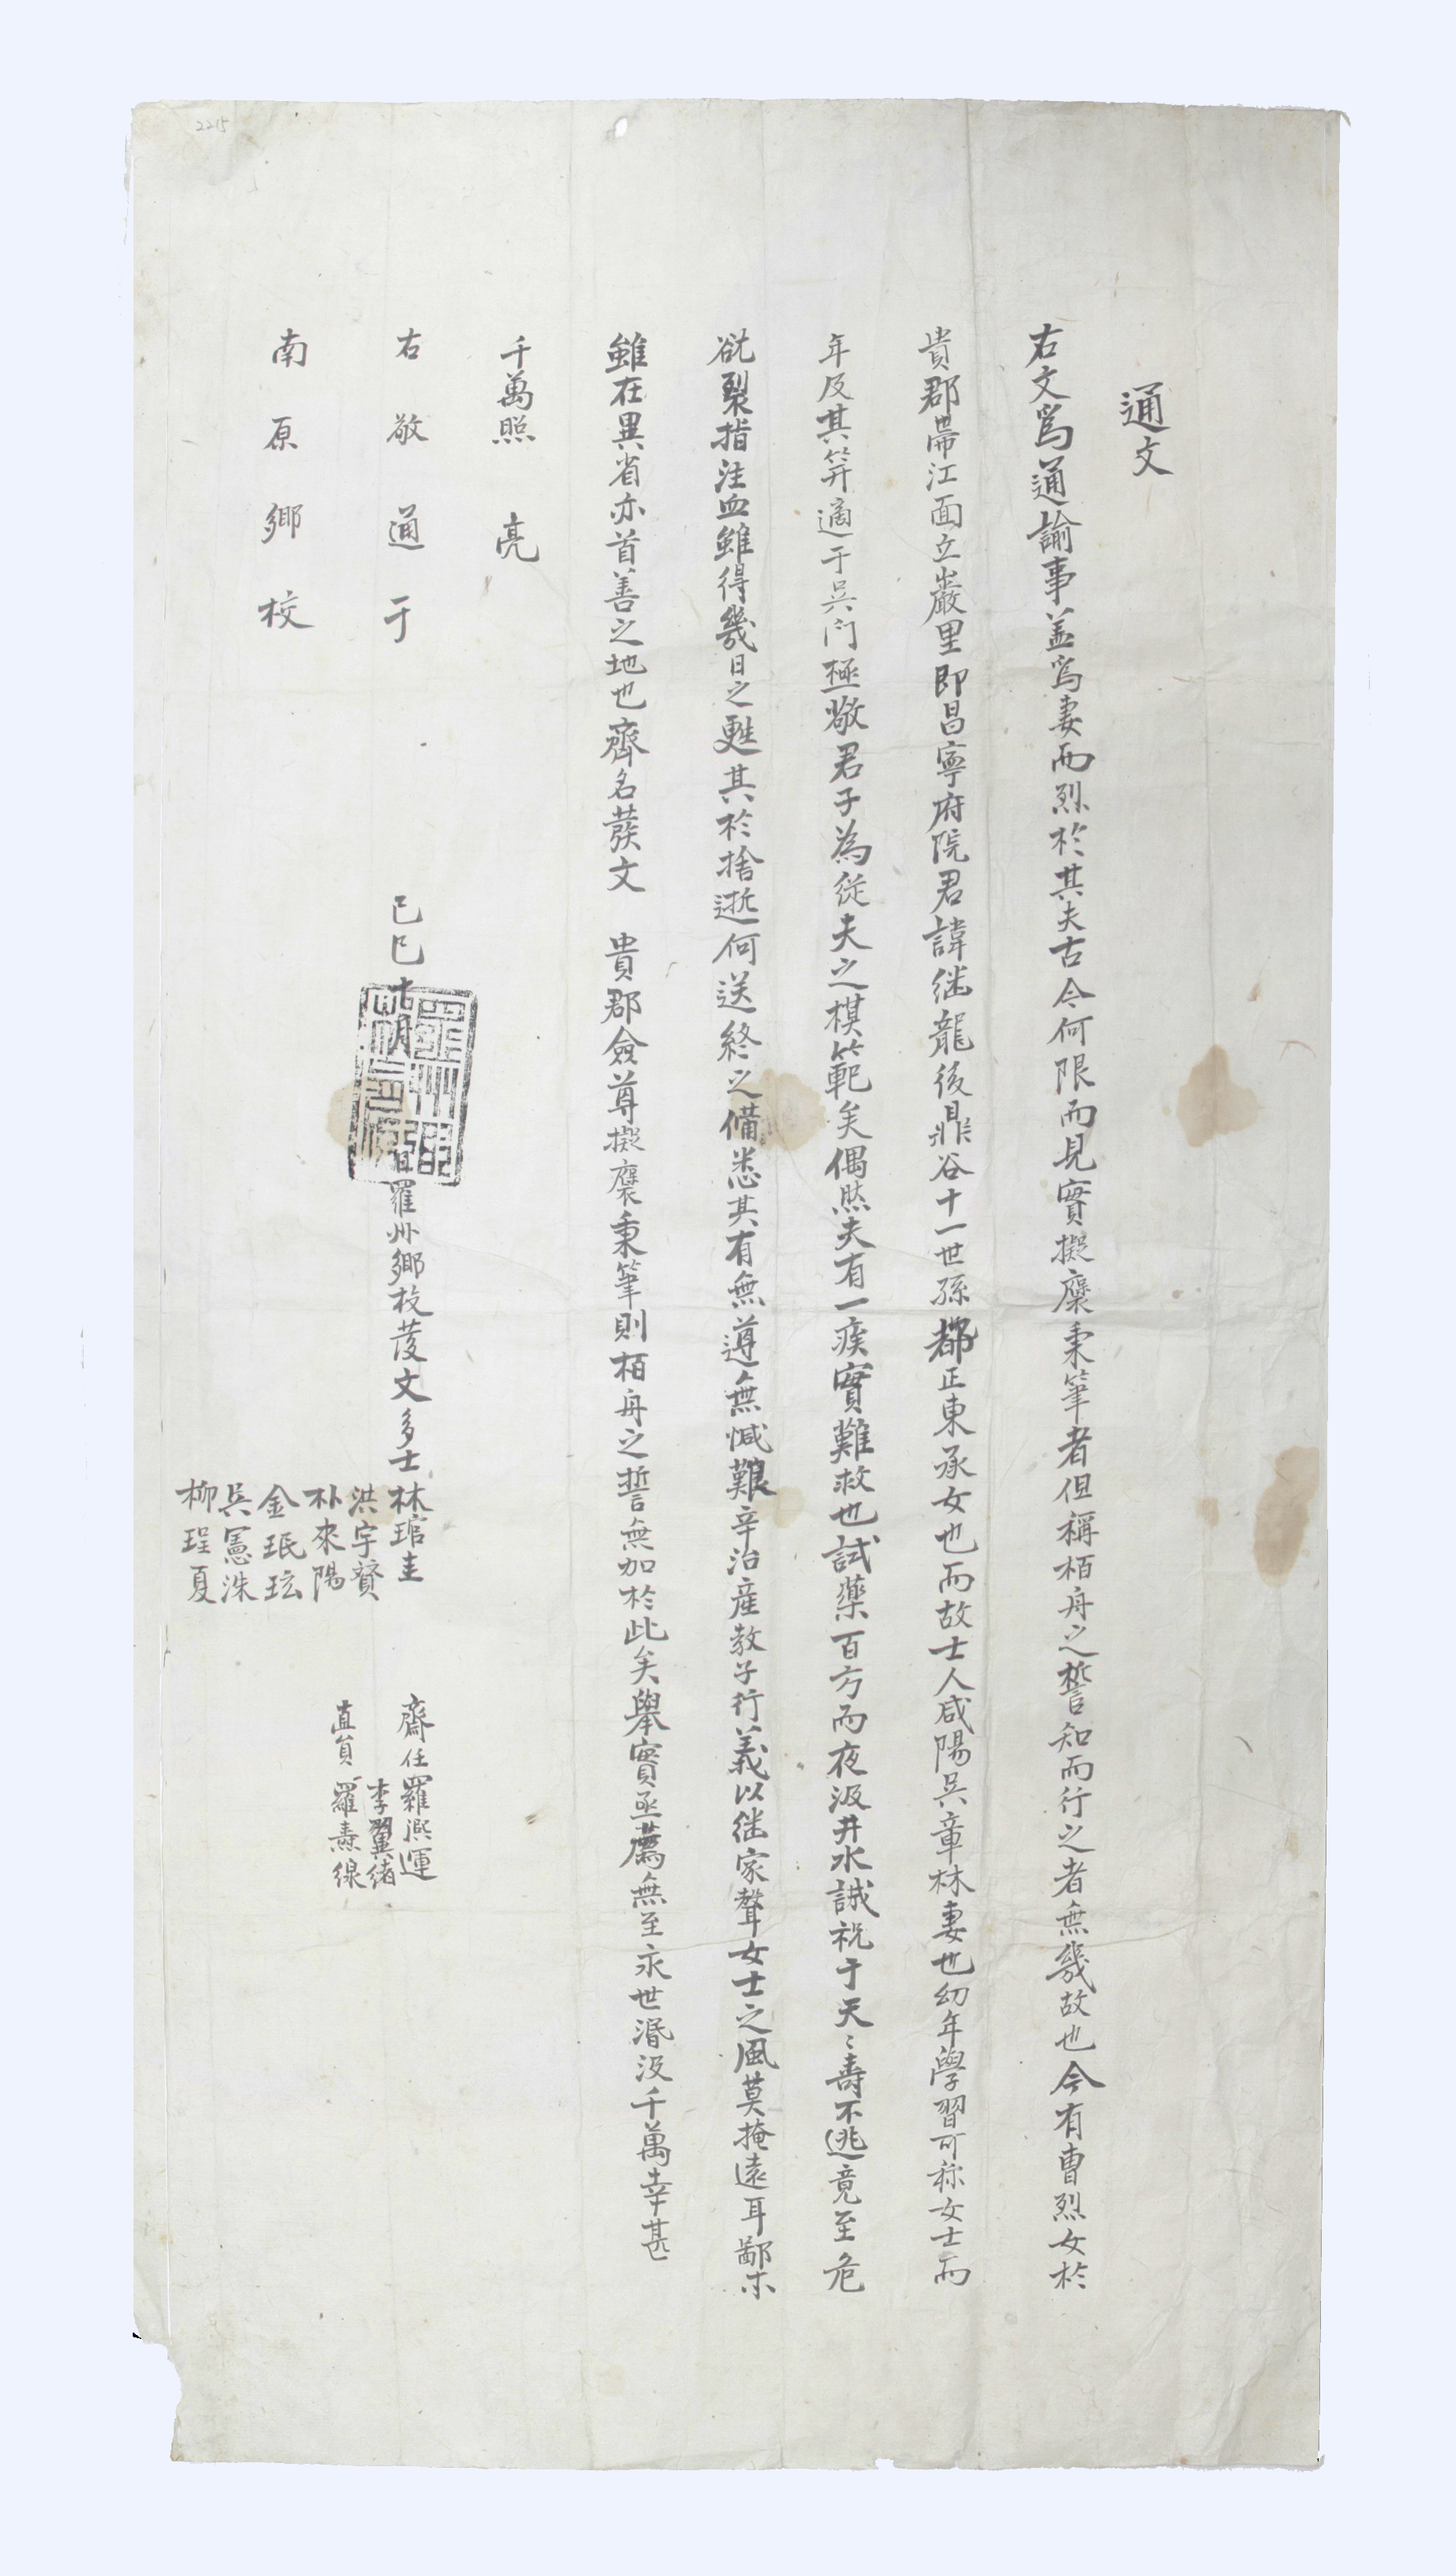 通文
右文爲通諭事盖爲妻而烈於其夫古今何限而見實擬稟秉筆者但稱栢舟之誓知而行之者無幾故也今有曺烈女於
貴郡帶江面立巖里即昌寧府院君諱継龍後鼎谷十一世孫都正東承女也而故士人咸陽吳章林妻也幼年學習可称女士而
年及其笄適于吳門極敬君子為従夫之模範矣偶然夫有一疾實難救也試藥百方而夜汲井水誠祝于天〻壽不逃竟至危
欲裂指注血雖得幾日之甦其於捨逝何送終之備悉其有無遵無憾艱辛治産教子行義以継家聲女士之風莫掩遠耳鄙等
雖在異省亦首善之地也齊名發文 貴郡僉尊擬褒秉筆則栢舟之誓無加於此矣舉實亟薦無至永世湣汲千萬幸甚
千萬照 亮
右敬通于
南原鄕校
己巳十月 日羅州鄕校發文多士林琯圭
洪宇賢
朴來陽
金珉玹
吳憲洙
柳珵夏
齋任羅凞運
李翼緖
直員羅燾線
2215